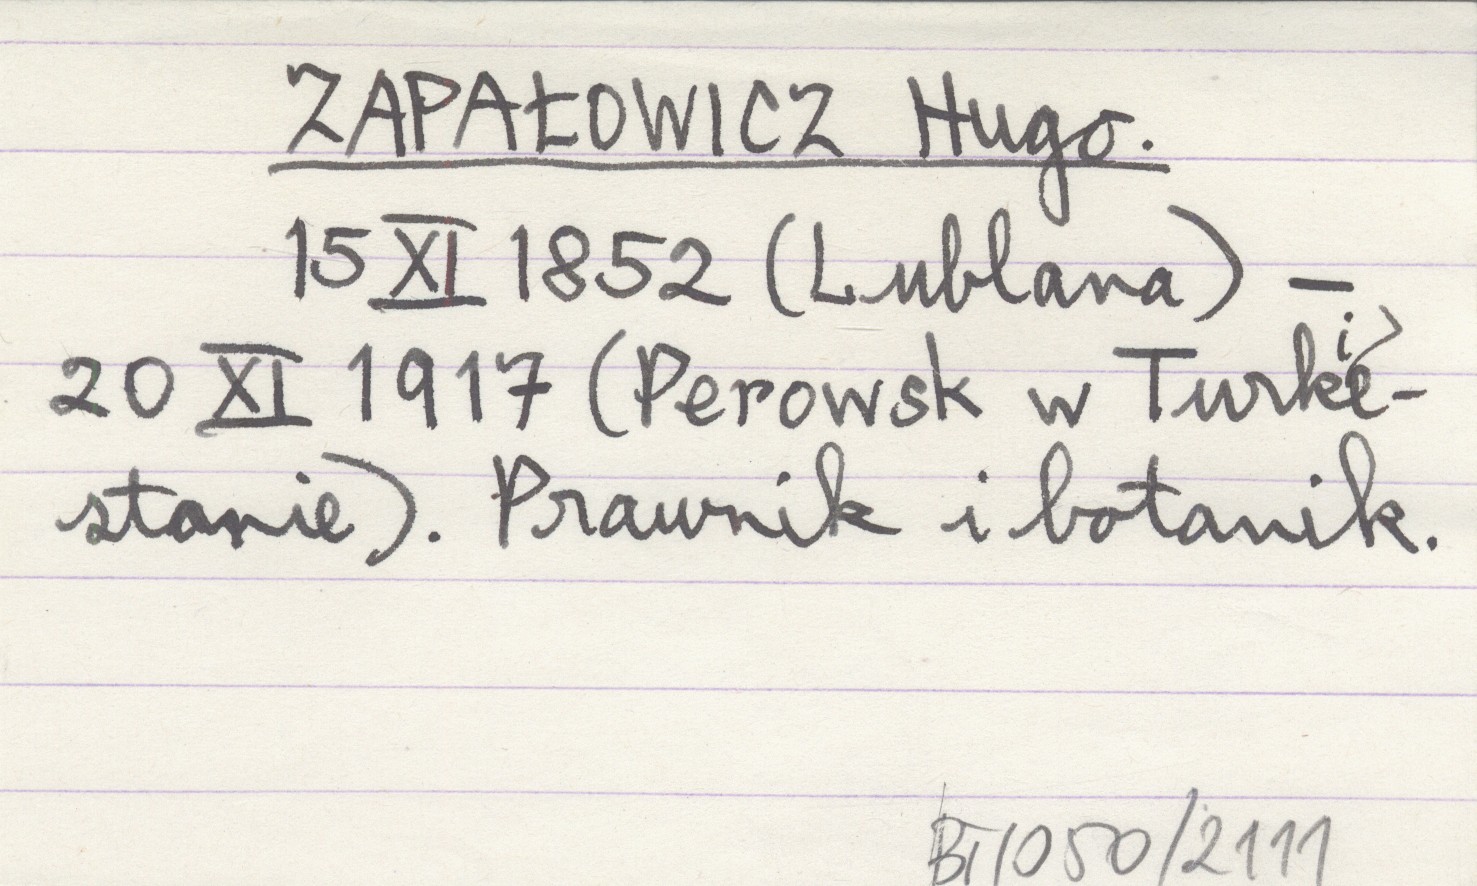 ZAPAŁOWICZ Hugo.
15 XI 1852 (Lublana) –
20 XI 1917 (Perowsk w Turki-
stanie). Prawnik i botanik.
BT/050/2111